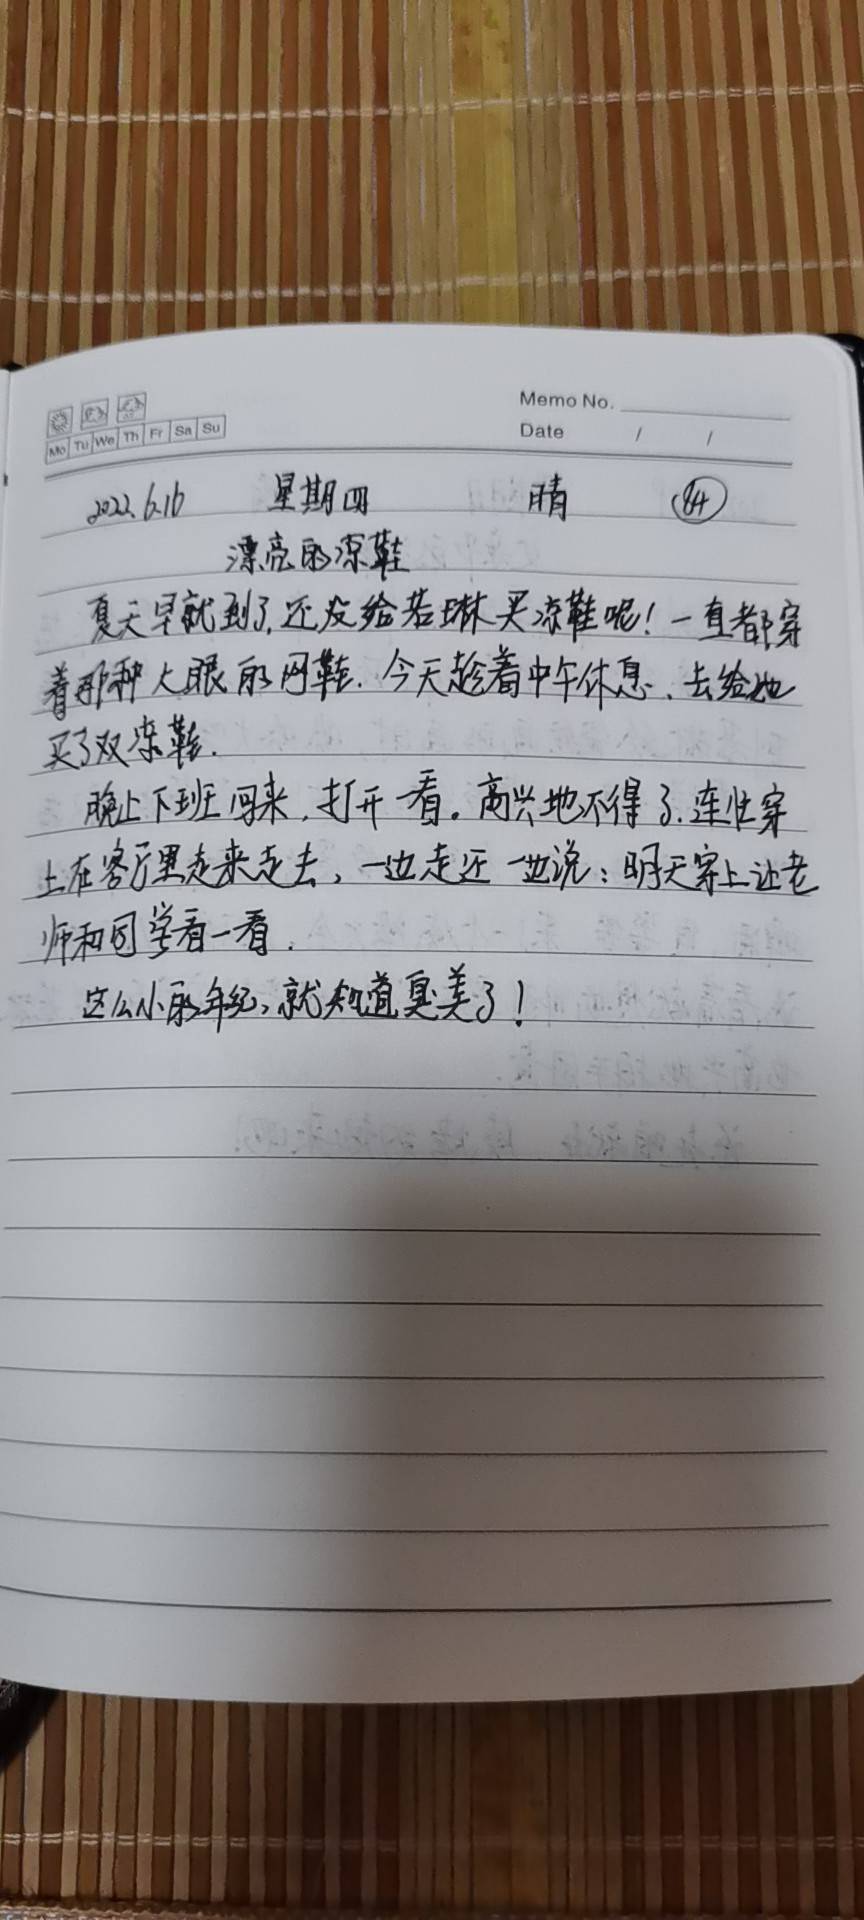 Memo No.
Mo Tu We Th Fr Sa Su
Date / /
2022.6.16 星期四 晴 84
漂亮的凉鞋
夏天早就到了,还没给若琳买凉鞋呢!一直都穿
着那种大眼的网鞋.今天趁着中午休息、去给她
买了双凉鞋.
晚上下班回来,打开一看。高兴地不得了.连忙穿
上在客厅里走来走去,一边走还一边说:明天穿上让老
师和同学看一看.
这么小的年纪,就知道臭美了!